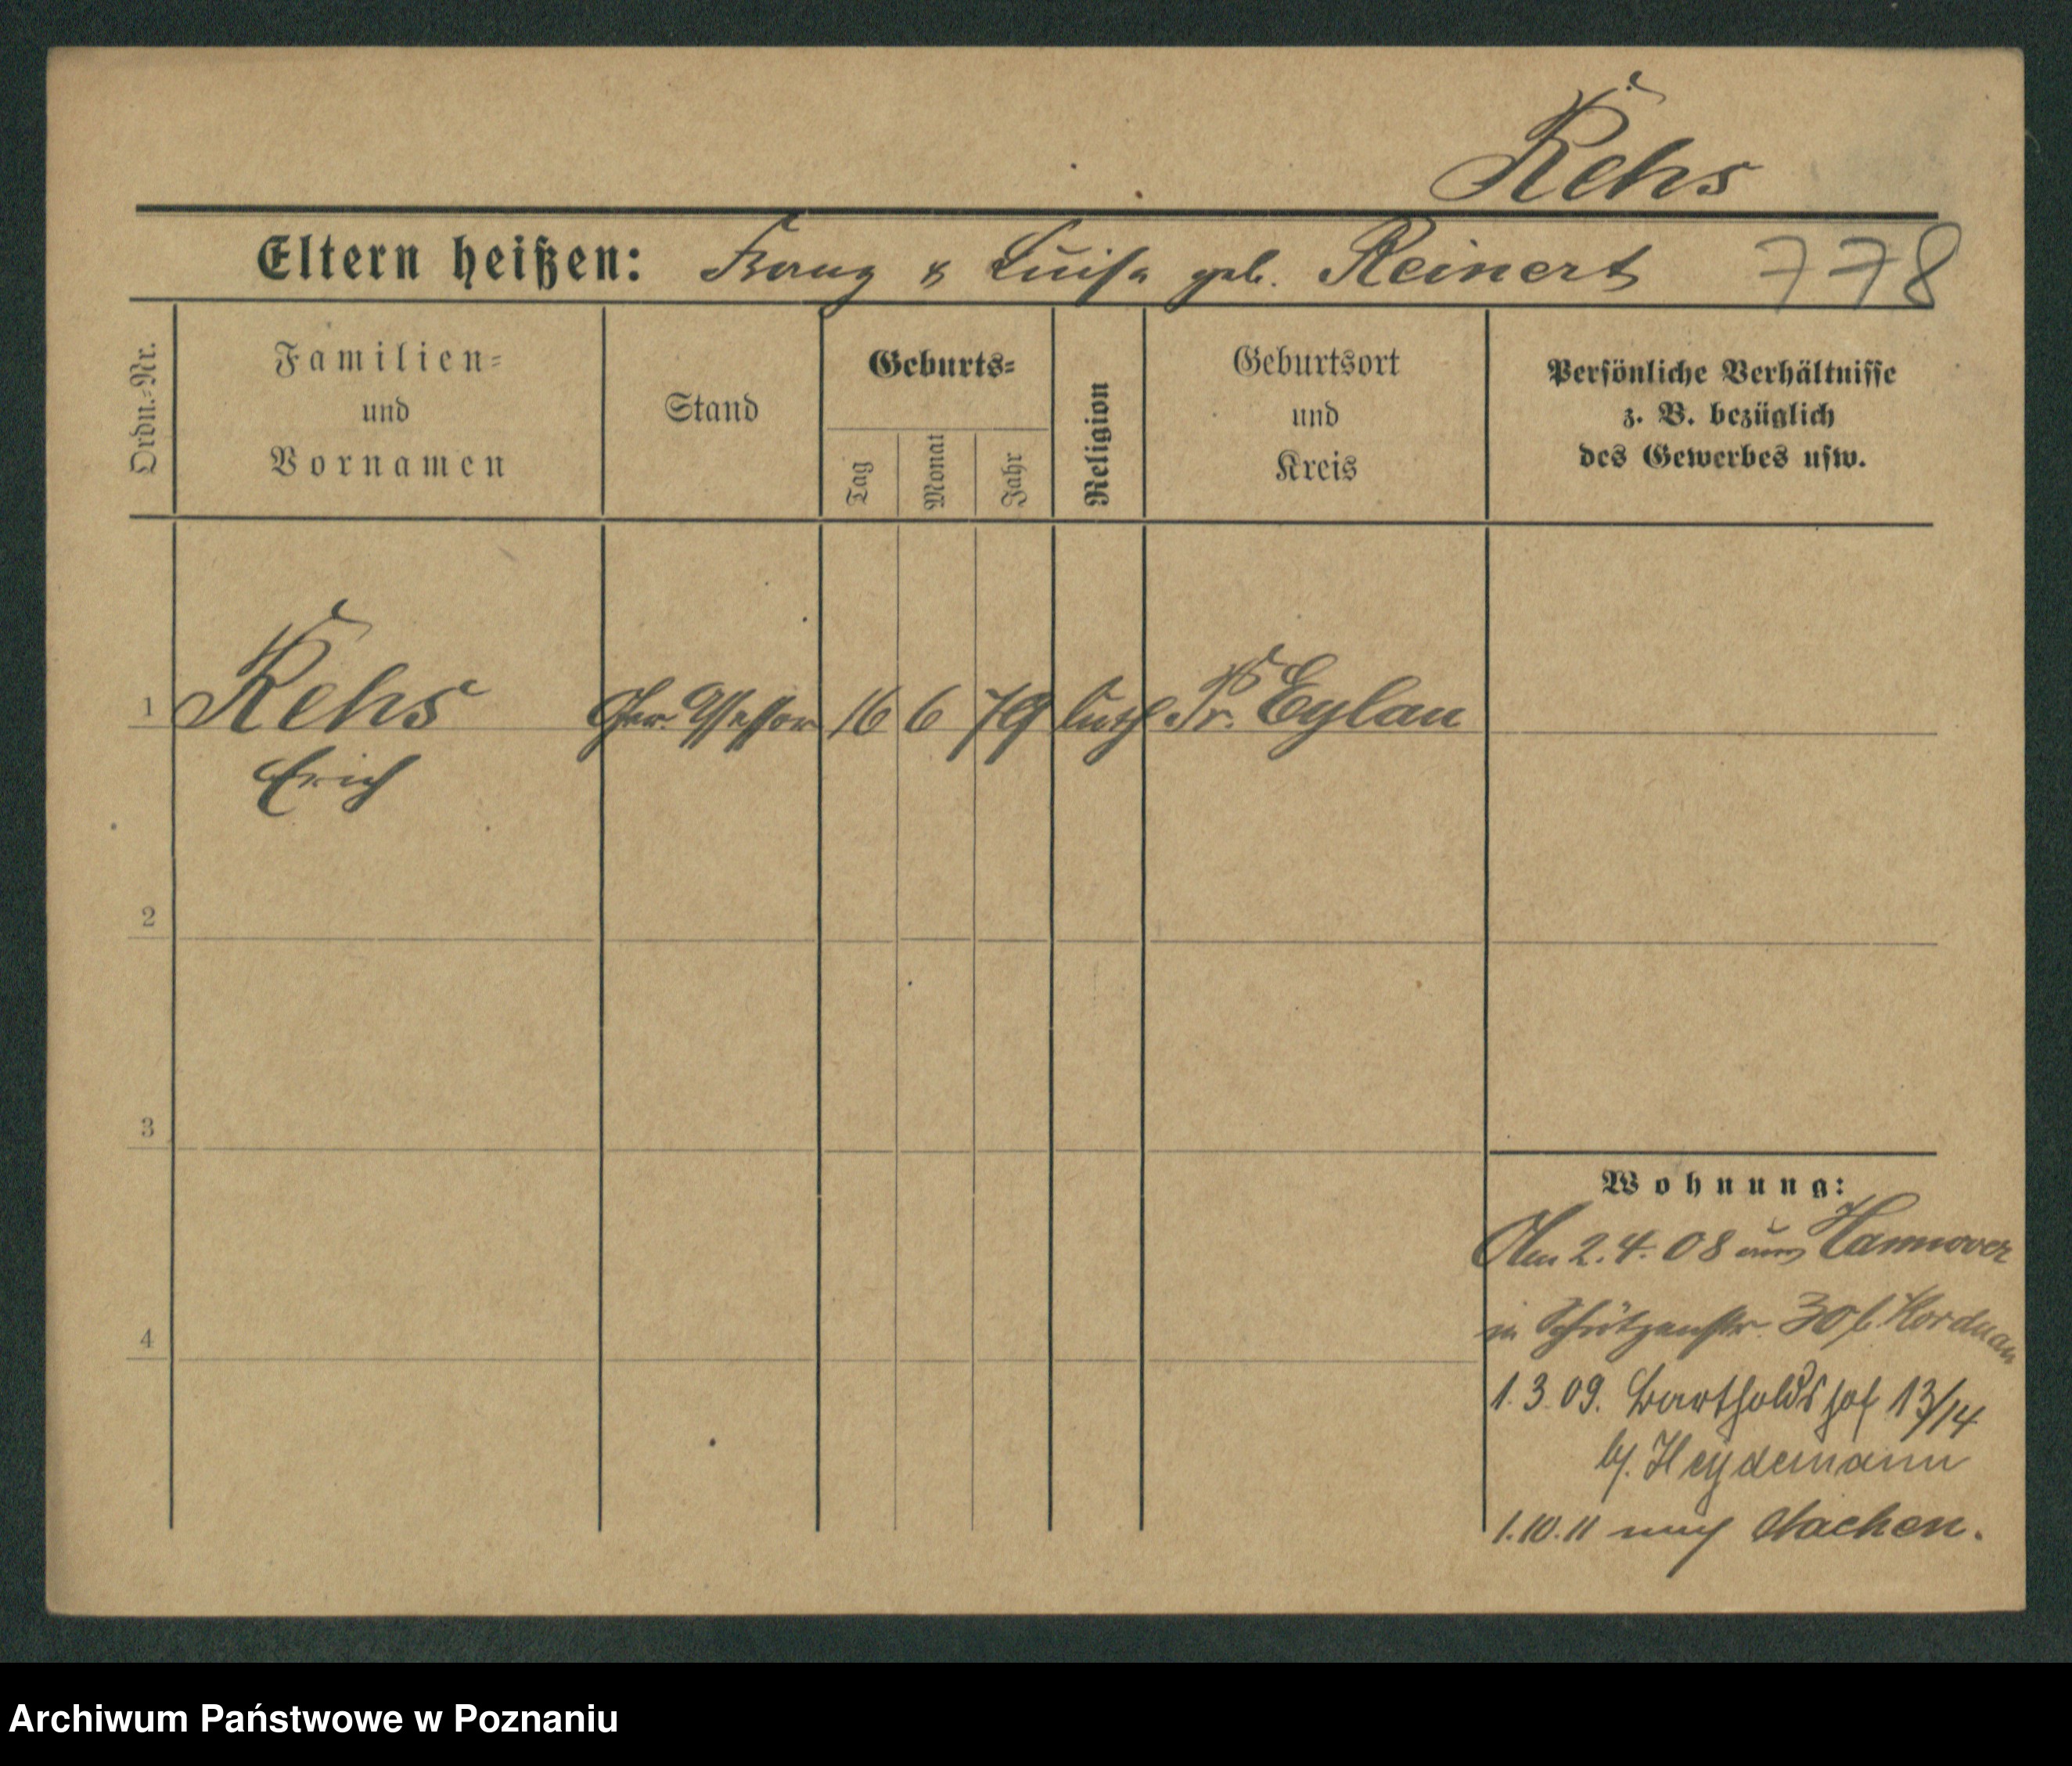 Rehs
Eltern heißen: Franz & Luise geb. Reinert 778
Ordn.-Nr.
Familien-
und
Vornamen
Stand
Geburts-
Tag
Monat
Jahr
Religion
Geburtsort
und
Kreis
Persönliche Verhältnisse
z. B. bezüglich
des Gewerbes usw.
1 Rehs Ger. Assessor 16 6 79 luth Pr. Eylau
Erich
2
3
4
Wohnung:
Am 2.4.08 aus Hannover
in Schützenstr. 30 b. Korduan
1.3.09. Bartholdshof 13/14
b/. Heydemann
1.10.11 nach Aachen.
Archiwum Państwowe w Poznaniu